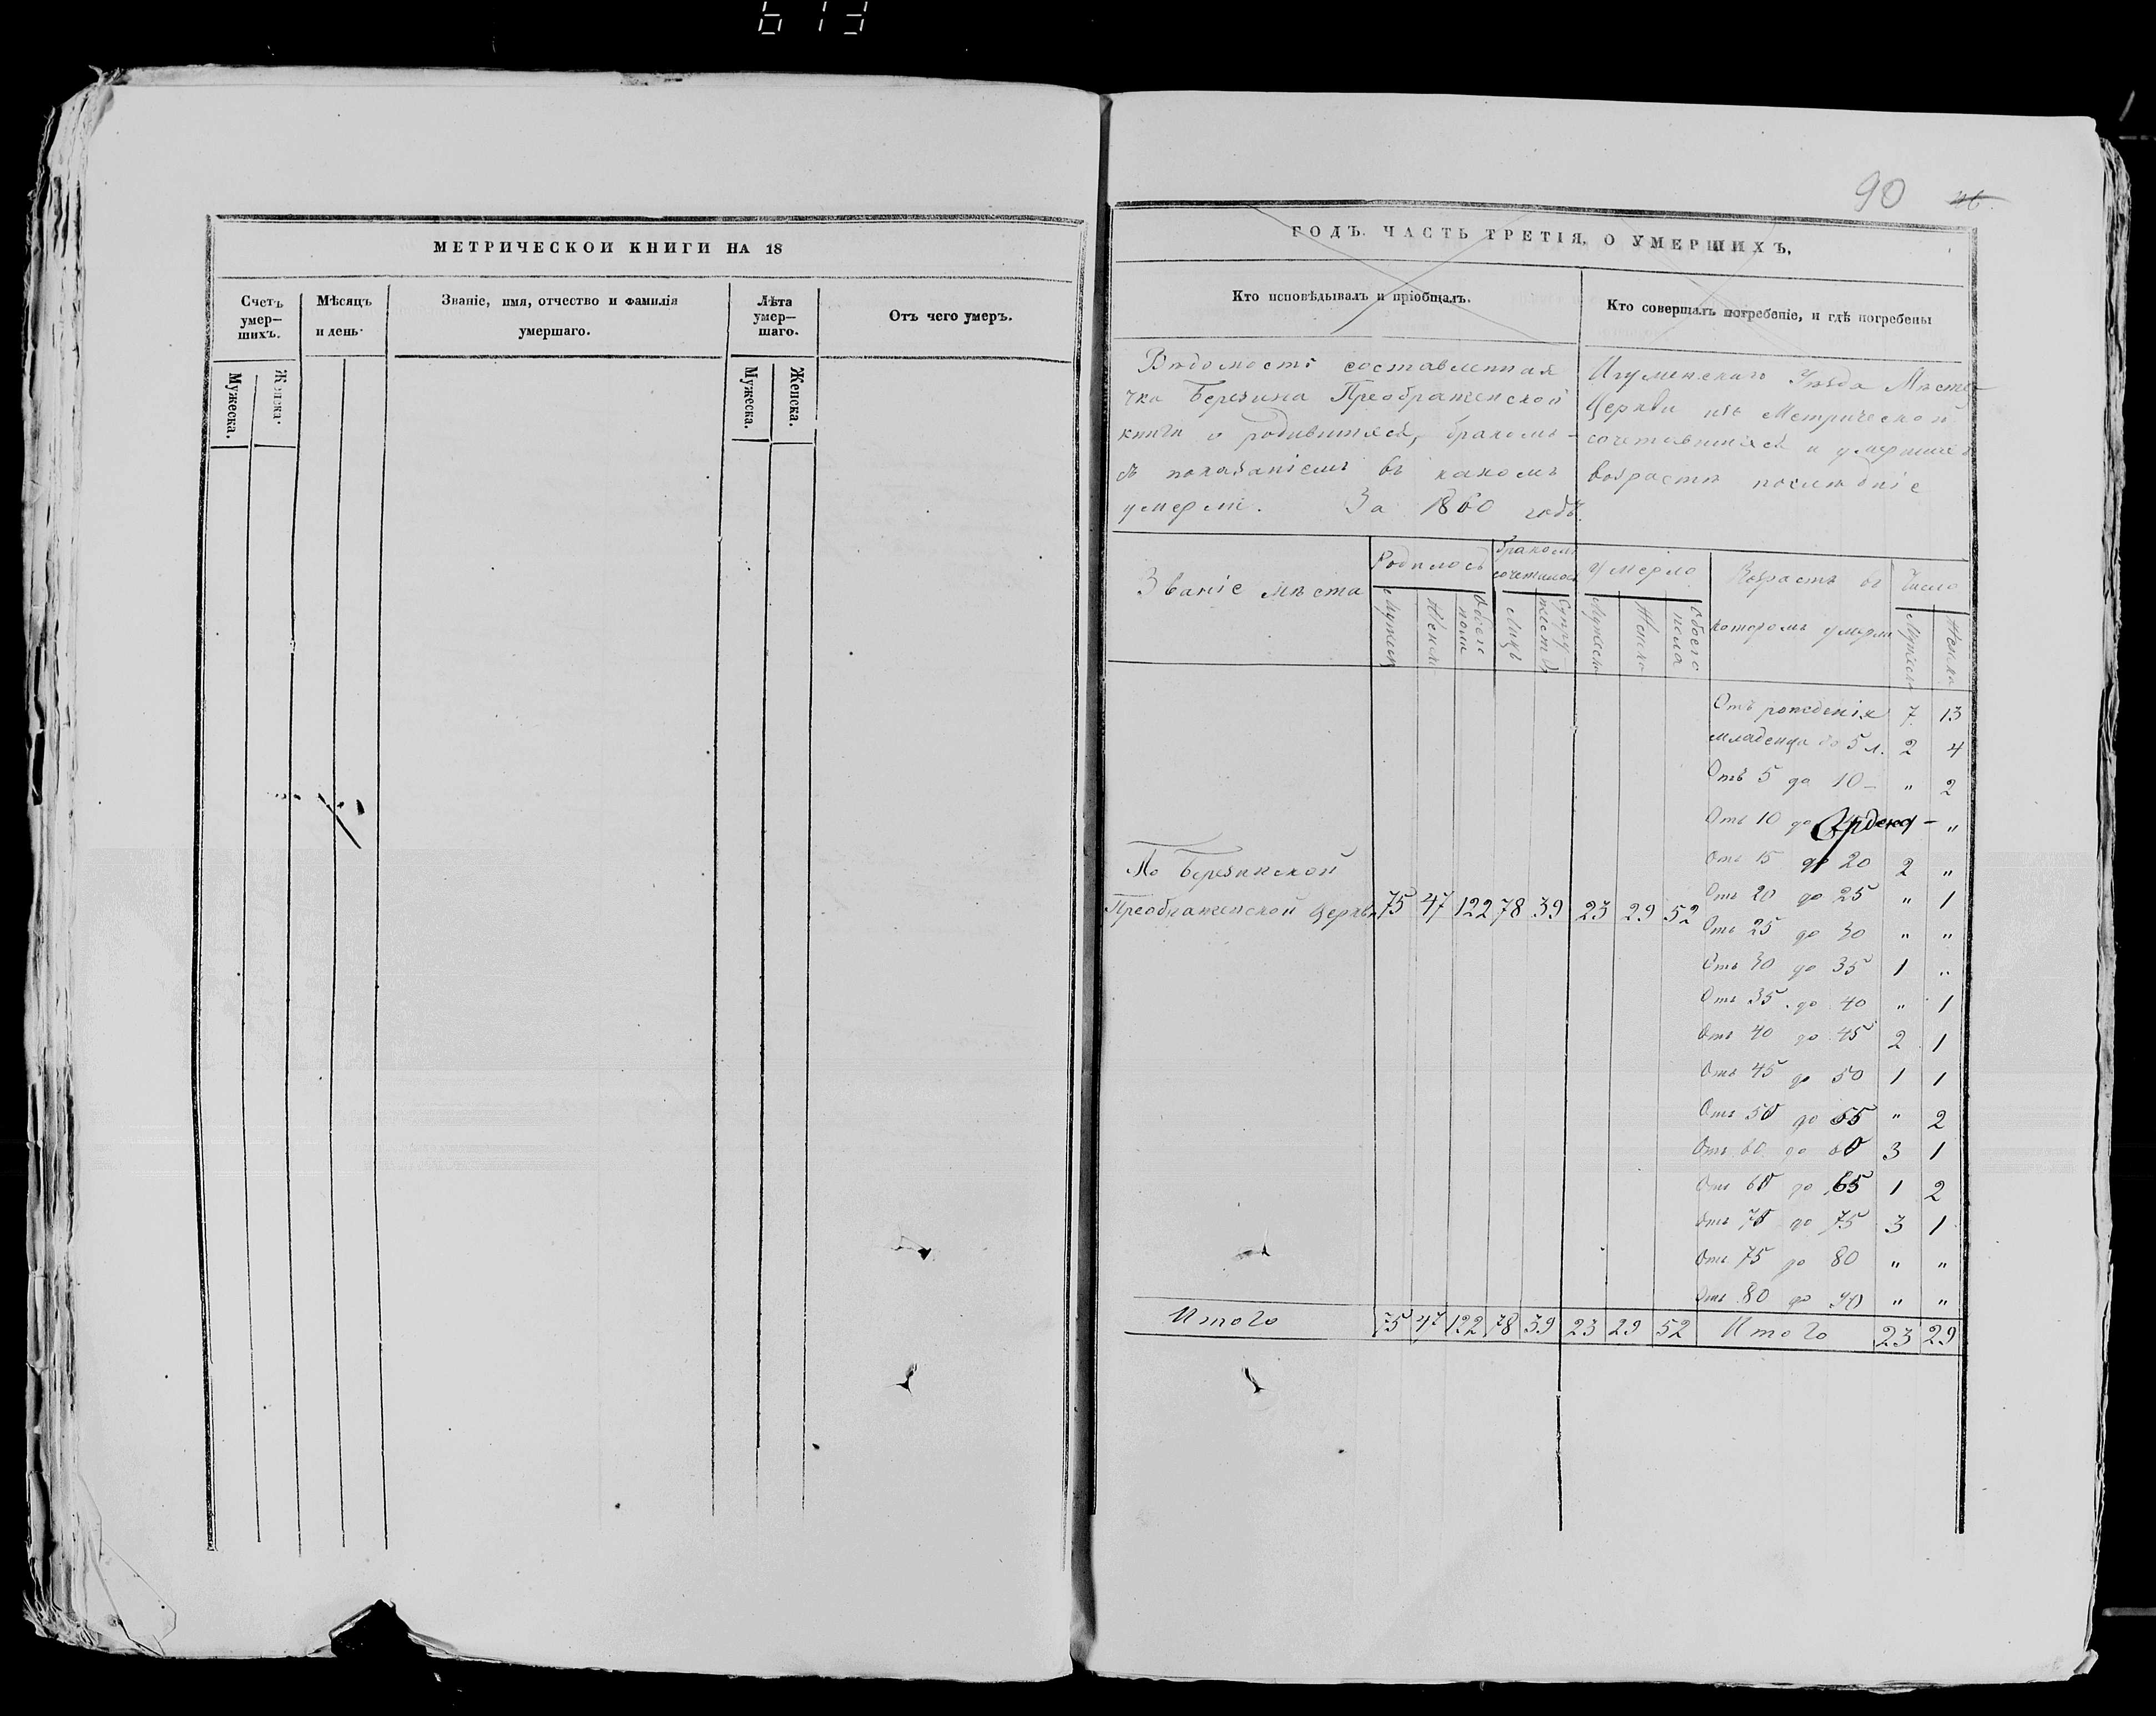 МЕТРИЧЕСКОЙ КНИГИ НА 18
Счетъ умер—шихъ.
Мужеска.
Женска.
Мѣсяцъ и день.
Званіе, имя, отчество и фамилія умершаго.
Лѣта умер—шаго.
Мужеска.
Женска.
Отъ чего умеръ.
90
ГОДЪ. ЧАСТЬ ТРЕТІЯ, О УМЕРШИХЪ.
Кто исповѣдывалъ и пріобщалъ.
Кто совершалъ погребеніе, и гдѣ погребены
Вѣдомость составленная Игуменскаго Уѣзда Мѣсте-
чка Березина Преображенской Церкви изъ Метрической
книги о родившихся, бракомъ- сочетавшихся и умершихъ
съ показаніемъ въ какомъ возрастѣ послѣдніе
умерли. За 1860 годъ.
Званіе мѣста
Родилось
Мужеск
Женск
Обоего пола
Бракомъ сочеталось
Лицъ
Супружествъ
Умерло
Мужеск
Женска
Обоего пола
Возрастъ въ
которомъ умерли
Число
Мужеск
Женска
Отъ рожденія 7 13
младенца до 5 л. 2 4
Отъ 5 до 10 — " 2
Отъ 10 до — "
Отъ 15 до 20 2 "
По Березинской
Преображенской Церкви 75 47 122 78 39 23 29 52
Отъ 20 до 25 " 1
Отъ 25 до 30 " "
Отъ 30 до 35 1 "
Отъ 35 до 40 " 1
Отъ 40 до 45 2 1
Отъ 45 до 50 1 1
Отъ 50 до 55 " 2
Отъ до 60 3 1
Отъ 60 до 65 1 2
Отъ 70 до 75 3 1
Отъ 75 до 80 " "
Отъ 80 до 90 " "
Итого 75 47 122 78 39 23 29 52 Итого 23 29